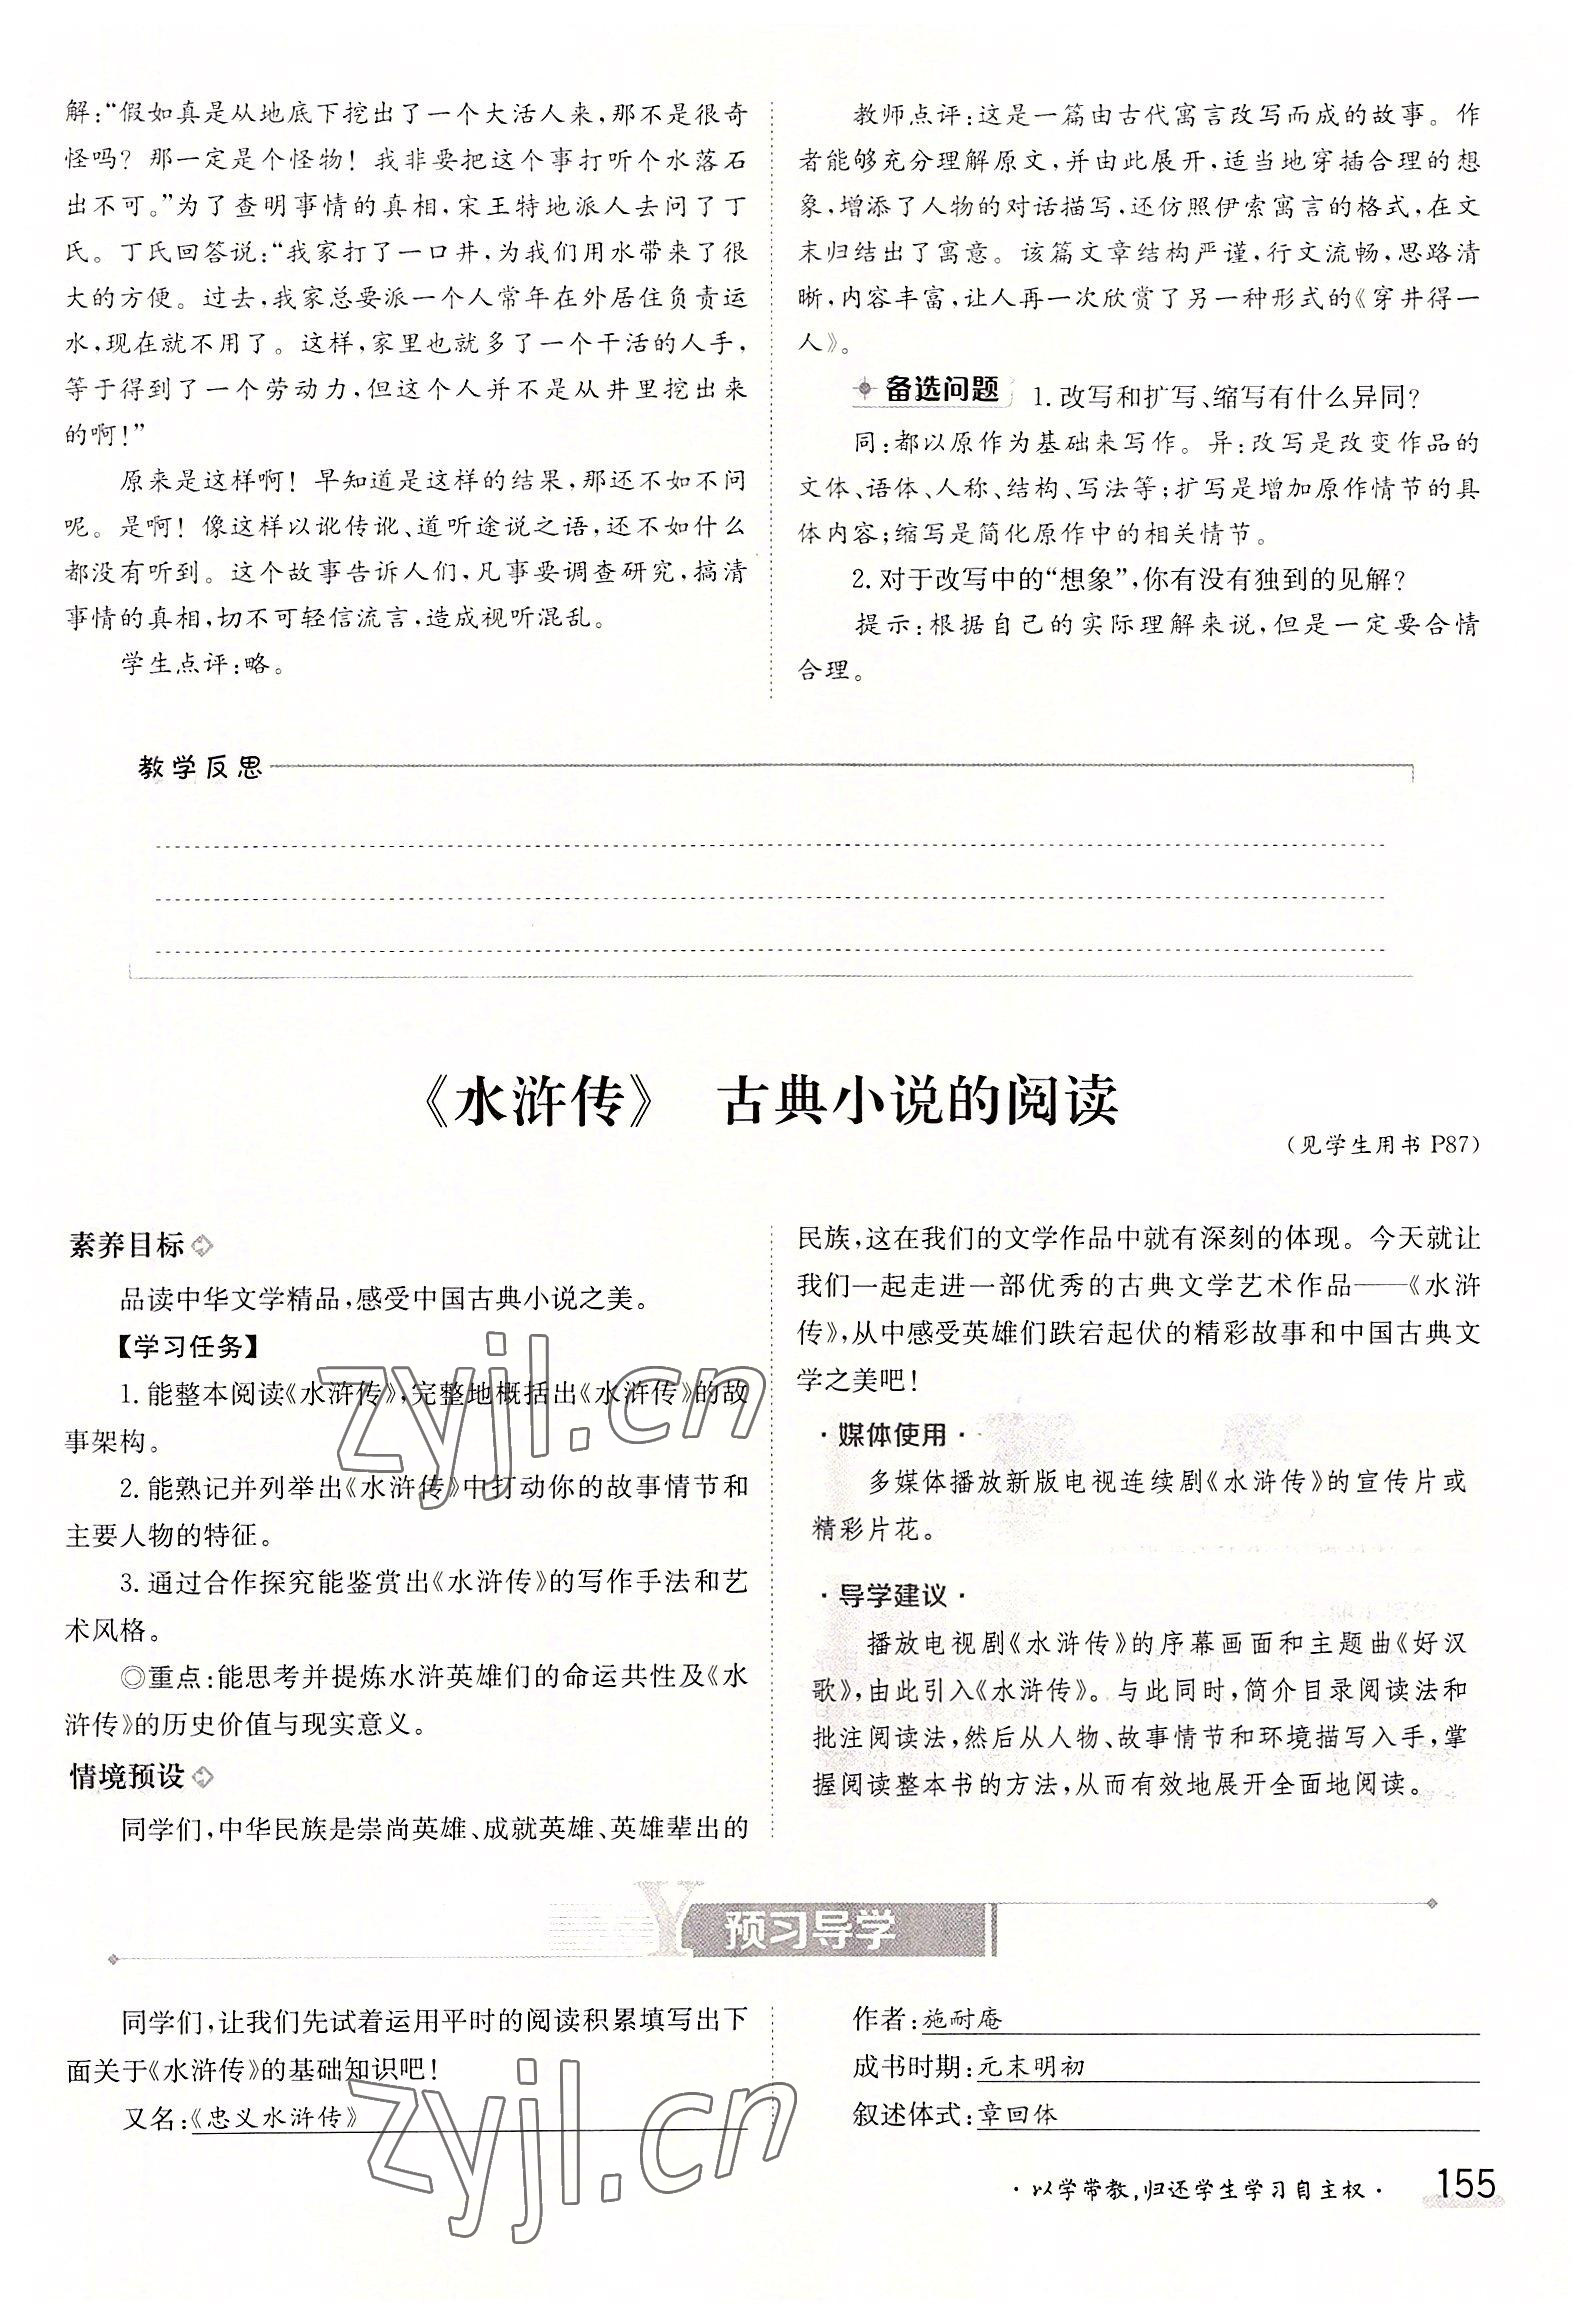 解：“假如真是从地底下挖出了一个大活人来，那不是很奇
怪吗？那一定是个怪物！我非要把这个事打听个水落石
出不可。”为了查明事情的真相，宋王特地派人去问了丁
氏。丁氏回答说：“我家打了一口井，为我们用水带来了很
大的方便。过去，我家总要派一个人常年在外居住负责运
水，现在就不用了。这样，家里也就多了一个干活的人手，
等于得到了一个劳动力，但这个人并不是从井里挖出来
的啊！”
原来是这样啊！早知道是这样的结果，那还不如不问
呢。是啊！像这样以讹传讹、道听途说之语，还不如什么
都没有听到。这个故事告诉人们，凡事要调查研究，搞清
事情的真相，切不可轻信流言，造成视听混乱。
学生点评：略。
教师点评：这是一篇由古代寓言改写而成的故事。作
者能够充分理解原文，并由此展开，适当地穿插合理的想
象，增添了人物的对话描写，还仿照伊索寓言的格式，在文
末归结出了寓意。该篇文章结构严谨，行文流畅，思路清
晰，内容丰富，让人再一次欣赏了另一种形式的《穿井得一
人》。
备选问题 1. 改写和扩写、缩写有什么异同？
同：都以原作为基础来写作。异：改写是改变作品的
文体、语体、人称、结构、写法等；扩写是增加原作情节的具
体内容；缩写是简化原作中的相关情节。
2. 对于改写中的“想象”，你有没有独到的见解？
提示：根据自己的实际理解来说，但是一定要合情
合理。
教学反思
《水浒传》 古典小说的阅读
（见学生用书 P87）
素养目标
品读中华文学精品，感受中国古典小说之美。
【学习任务】
1. 能整本阅读《水浒传》，完整地概括出《水浒传》的故
事架构。
2. 能熟记并列举出《水浒传》中打动你的故事情节和
主要人物的特征。
3. 通过合作探究能鉴赏出《水浒传》的写作手法和艺
术风格。
◎重点：能思考并提炼水浒英雄们的命运共性及《水
浒传》的历史价值与现实意义。
情境预设
同学们，中华民族是崇尚英雄、成就英雄、英雄辈出的
民族，这在我们的文学作品中就有深刻的体现。今天就让
我们一起走进一部优秀的古典文学艺术作品——《水浒
传》，从中感受英雄们跌宕起伏的精彩故事和中国古典文
学之美吧！
·媒体使用·
多媒体播放新版电视连续剧《水浒传》的宣传片或
精彩片花。
·导学建议·
播放电视剧《水浒传》的序幕画面和主题曲《好汉
歌》，由此引入《水浒传》。与此同时，简介目录阅读法和
批注阅读法，然后从人物、故事情节和环境描写入手，掌
握阅读整本书的方法，从而有效地展开全面地阅读。
zyjl.cn
Y 预习导学
同学们，让我们先试着运用平时的阅读积累填写出下
面关于《水浒传》的基础知识吧！
又名：《忠义水浒传》
作者：施耐庵
成书时期：元末明初
叙述体式：章回体
zyjl.cn
·以学带教，归还学生学习自主权· 155